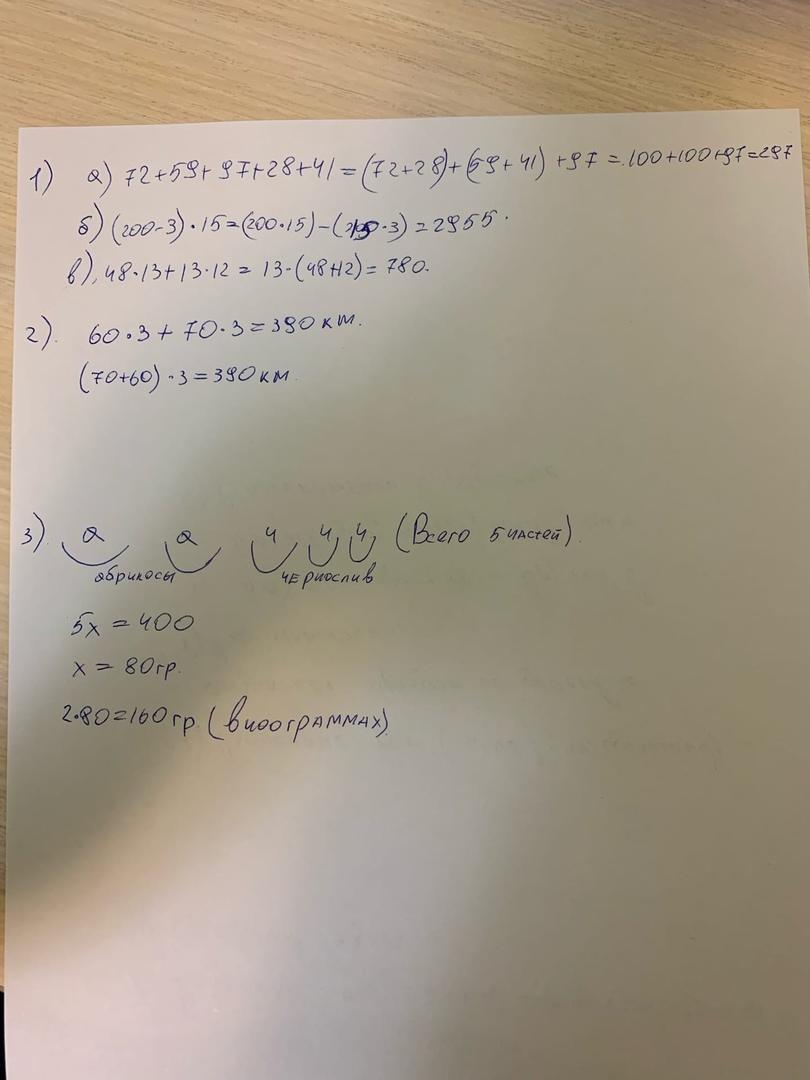 1) а) 72+59+97+28+41=(72+28)+(59+41)+97=100+100+97=297
б) (200-3)·15=(200·15)-(15·3)=2955.
в) 48·13+13·12=13·(48+12)=780.
2). 60·3+70·3=390км.
(70+60)·3=390км.
3). а а ч ч ч (Всего 5 частей).
абрикосы чернослив
5х=400
х=80гр.
2·80=160гр.